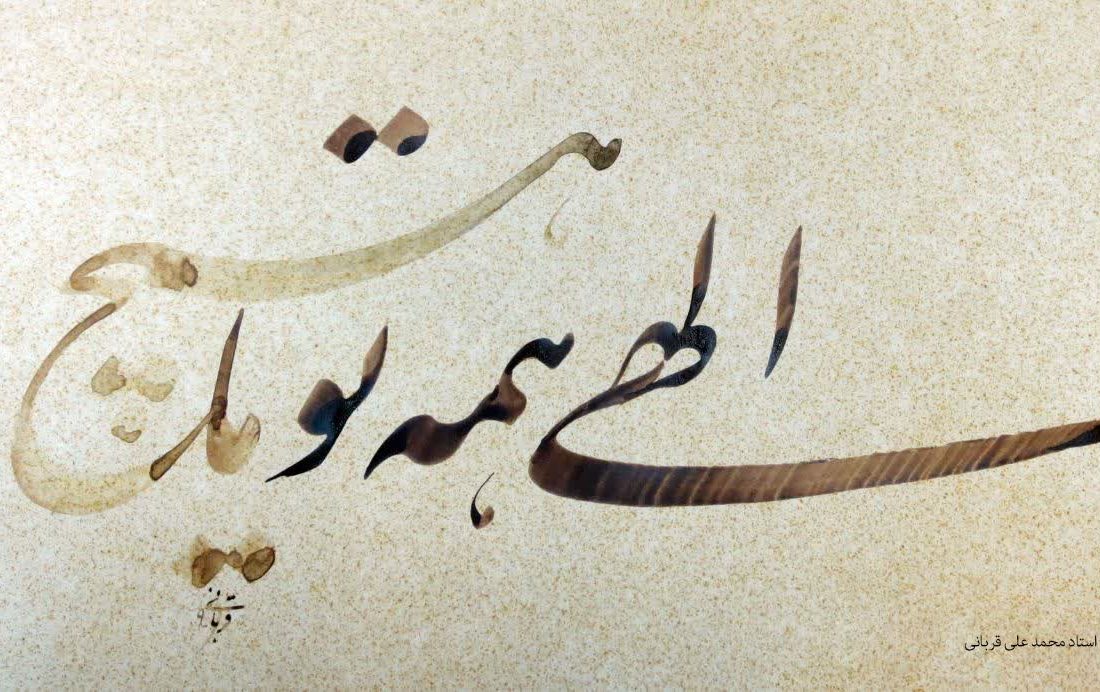 الهی همه تو ما هیچ
قربانی
استاد محمد علی قربانی